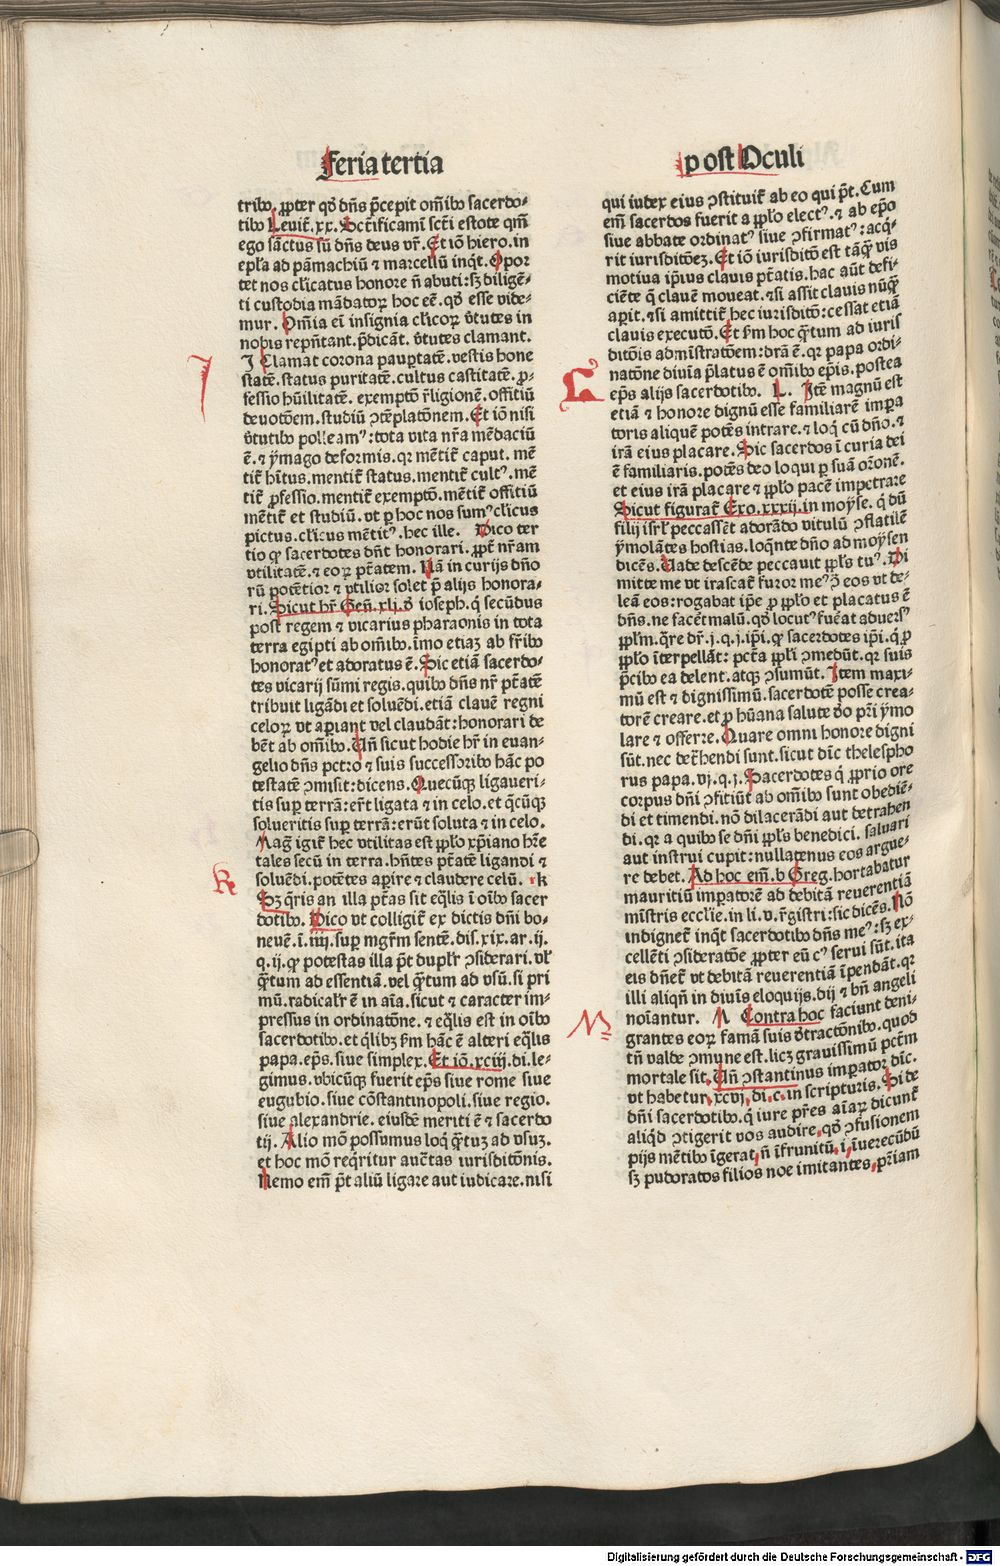 Feria tertia
post Oculi
tribꝰ. ꝓpter qḋ dñs p̄cepit om̄ibꝰ sacerdo-
tibꝰ Leuit̄. xx. Sct̄ificamī sct̄i estote qm̄
ego sāctus sū dñs deus vr̄. Et iō hiero. in
epl̄a ad pāmachiū ⁊ marcellū inq̄t. Opor
tet nos cl̄icatus honore n̄ abuti: sꝫ diligē-
ti custodia mādatoꝝ hoc eē. qḋ esse vide-
mur. Om̄ia ei̅ insignia cl̄icoꝝ v̄tutes in
nobis repn̄tant. p̄dicāt. v̄tutes clamant.
J Clamat corona paup̱tatē. vestis hone
statē. status puritatē. cultus castitatē. ꝓ-
fessio hūilitatē. exemptō r̄ligionē. offitiū
deuotōem. studiū ꝯtēplatōnem. Et iō nisi
v̄tutibꝰ polleamꝰ: tota vita nr̄a mēdaciū
ē. ⁊ ymago deformis. qr mētit̄ caput. mē
tit̄ hītus. mentit̄ status. mentit̄ cultꝰ. mē
tit̄ ꝓfessio. mentit̄ exemptō. mētit̄ offitiū
mētit̄ et studiū. vt ꝑ hoc nos sumꝰ cl̄icus
pictus. cl̄icus mētitꝰ. hec ille. Dico ter
tio ꝙ sacerdotes dn̄t honorari. ꝓpt̄ nr̄am
vtilitatē. ⁊ eoꝝ ptātem. Nā in curijs dño
rū potētior ⁊ vtilior solet p̄ alijs honora-
ri. Sicut hr̄ Gen̄. xli. ḋ ioseph. q̇ secūdus
post regem ⁊ vicarius pharaonis in tota
terra egipti ab om̄ibꝰ. imo etiaꝫ ab fr̄ibꝰ
honoratꝰ et adoratus ē. Sic etiā sacerdo-
tes vicarij sūmi regis. quibꝰ dñs nr̄ ptātē
tribuit ligādi et soluēdi. etiā clauē regni
celoꝝ vt aꝑiant vel claudāt: honorari de
bēt ab om̄ibꝰ. Uñ sicut hodie hr̄ in euan-
gelio dñs petro ⁊ suis successoribꝰ hāc po
testatē ꝯmisit: dicens. Quecūqꝫ ligaueri-
tis suꝑ terrā: er̄t ligata ⁊ in celo. et q̄cūqꝫ
solueritis suꝑ terrā: erūt soluta ⁊ in celo.
Maḡ igit̄ hec vtilitas est ꝓplo xp̄iano hr̄e
tales secū in terra. hn̄tes ptātē ligandi ⁊
soluēdi. potētes aꝑire ⁊ claudere celū. k
Sꝫ q̄ris an illa ptās sit eq̄lis ī oībꝰ sacer
dotibꝰ. Dico vt colligit̄ ex dictis dñi bo-
neuē. ī. iiij. suꝑ mgr̄m sentē. dis. xix. ar. ij.
q. ij. ꝙ potestas illa pt̄ dupl̄r ꝯsiderari. vl̄
q̄tum ad essentiā. vel q̄tum ad vsū. si pri
mū. radicalr̄ ē in aīa. sicut ⁊ caracter im-
pressus in ordinatōne. ⁊ eq̄lis est in oībꝰ
sacerdotibꝰ. et q̄libꝫ ẜm hāc ē alteri eq̄lis
papa. ep̄s. siue simplex. Et iō. xciij. di. le-
gimus. vbicūqꝫ fuerit ep̄s siue rome siue
eugubio. siue cōstantinopoli. siue regio.
siue alexandrie. eiusdē meriti ē ⁊ sacerdo
tij. Alio mō possumus loq̇ q̄tuꝫ ad vsuꝫ.
et hoc mō req̇ritur auct̄as iurisditōnis.
Nemo em̄ pt̄ aliū ligare aut iudicare. nisi
qui iudex eius ꝯstituit̄ ab eo qui pt̄. Cum
em̄ sacerdos fuerit a ꝓplo electꝰ. ⁊ ab ep̄o
siue abbate ordinatꝰ siue ꝯfirmatꝰ: acq̇-
rit iurisditōeꝫ. Et iō iurisditō est tāq̄ vis
motiua ip̄ius clauis ptātis. hac aūt defi-
ciēte q̇ clauē moueat. ⁊si assit clauis nūq̄
aꝑit. ⁊si amittit̄ hec iurisditō: cessat etiā
clauis executō. Et ẜm hoc q̄tum ad iuris
ditōis admīstratōem: dr̄a ē. qr papa ordi-
natōne diuīa p̄latus ē om̄ibꝰ ep̄is. postea
ep̄s alijs sacerdotibꝰ. L. Itē magnū est
etiā ⁊ honore dignū esse familiarē imꝑa
toris aliquē potēs intrare. ⁊ loq̇ cū dño. ⁊
irā eius placare. Sic sacerdos ī curia dei
ē familiaris. potēs deo loqui ꝑ suā orōnē.
et eius irā placare ⁊ ꝓplo pacē impetrare
Sicut figurat̄ Exo. xxxij. in moyse. q̇ dū
filij isrl̄ peccassēt adorādo vitulū ꝯflatilē
ymolātes hostias. loq̄nte dño ad moysen
dicēs. Uade descēde peccauit ꝓpls tuꝰ. Di
mitte me vt irascat̄ furor meꝰ ꝯ̄ eos vt de-
leā eos: rogabat ip̄e ꝓ ꝓplo et placatus ē
dñs. ne facēt malū. qḋ locutꝰ fuēat aduersꝰ
ꝓplm. q̄re dr̄. j. q. j. ip̄i. ꝙ sacerdotes ip̄i. q̇ ꝓ
ꝓplo īterpellāt: pctā ꝓpli ꝯmedūt. qr suis
p̄cibꝰ ea delent. atqꝫ ꝯsumūt. Item maxi-
mū est ⁊ dignissimū. sacerdotē posse crea-
torē creare. et ꝓ hūana salute ḋo pr̄i ymo
lare ⁊ offerre. Quare omni honore digni
sūt. nec det̄hendi sunt. sicut dīc thelespho
rus papa. vj. q. j. Sacerdotes q̇ ꝓprio ore
corpus dñi ꝯfitiūt ab om̄ibꝰ sunt obediē-
di et timendi. nō dilacerādi aut detrahen
di. qr a quibꝰ se dñi ꝓpls benedici. saluari
aut instrui cupit: nullatenus eos argue-
re debet. Ad hoc em̄. b Greg. hortabatur
mauritiū imꝑatorē ad debitā reuerentiā
mīstris eccl̄ie. in li. v. r̄gistri: sic dicēs. Nō
indignet̄ inq̄t sacerdotibꝰ dñs meꝰ: sꝫ ex-
cellēti ꝯsideratōe ꝓpter eū cꝰ serui sūt. ita
eis dñet̄ vt debitā reuerentiā īpendāt. qr
illi aliqn̄ in diuīs eloquijs. dij ⁊ bn̄ angeli
noīantur. M Contra hoc faciunt deni-
grantes eoꝝ famā suis ḋtractōnibꝰ. quod
tn̄ valde ꝯmune est. licꝫ grauissimū pctm̄
mortale sit. Uñ ꝯstantinus imꝑator dīc.
vt habetur. xcvj. di. c. in scripturis. Si de
dñi sacerdotibꝰ. q̇ iure pr̄es aīaꝝ dicunt̄
aliq̇d ꝯtigerit vos audire. qḋ ꝯfusionem
pijs mētibꝰ īgerat. n̄ īfrunitū. i. īuerecūdū
sꝫ pudoratos filios noe imitantes. pr̄iam
J
k
L
M
Digitalisierung gefördert durch die Deutsche Forschungsgemeinschaft - DFG